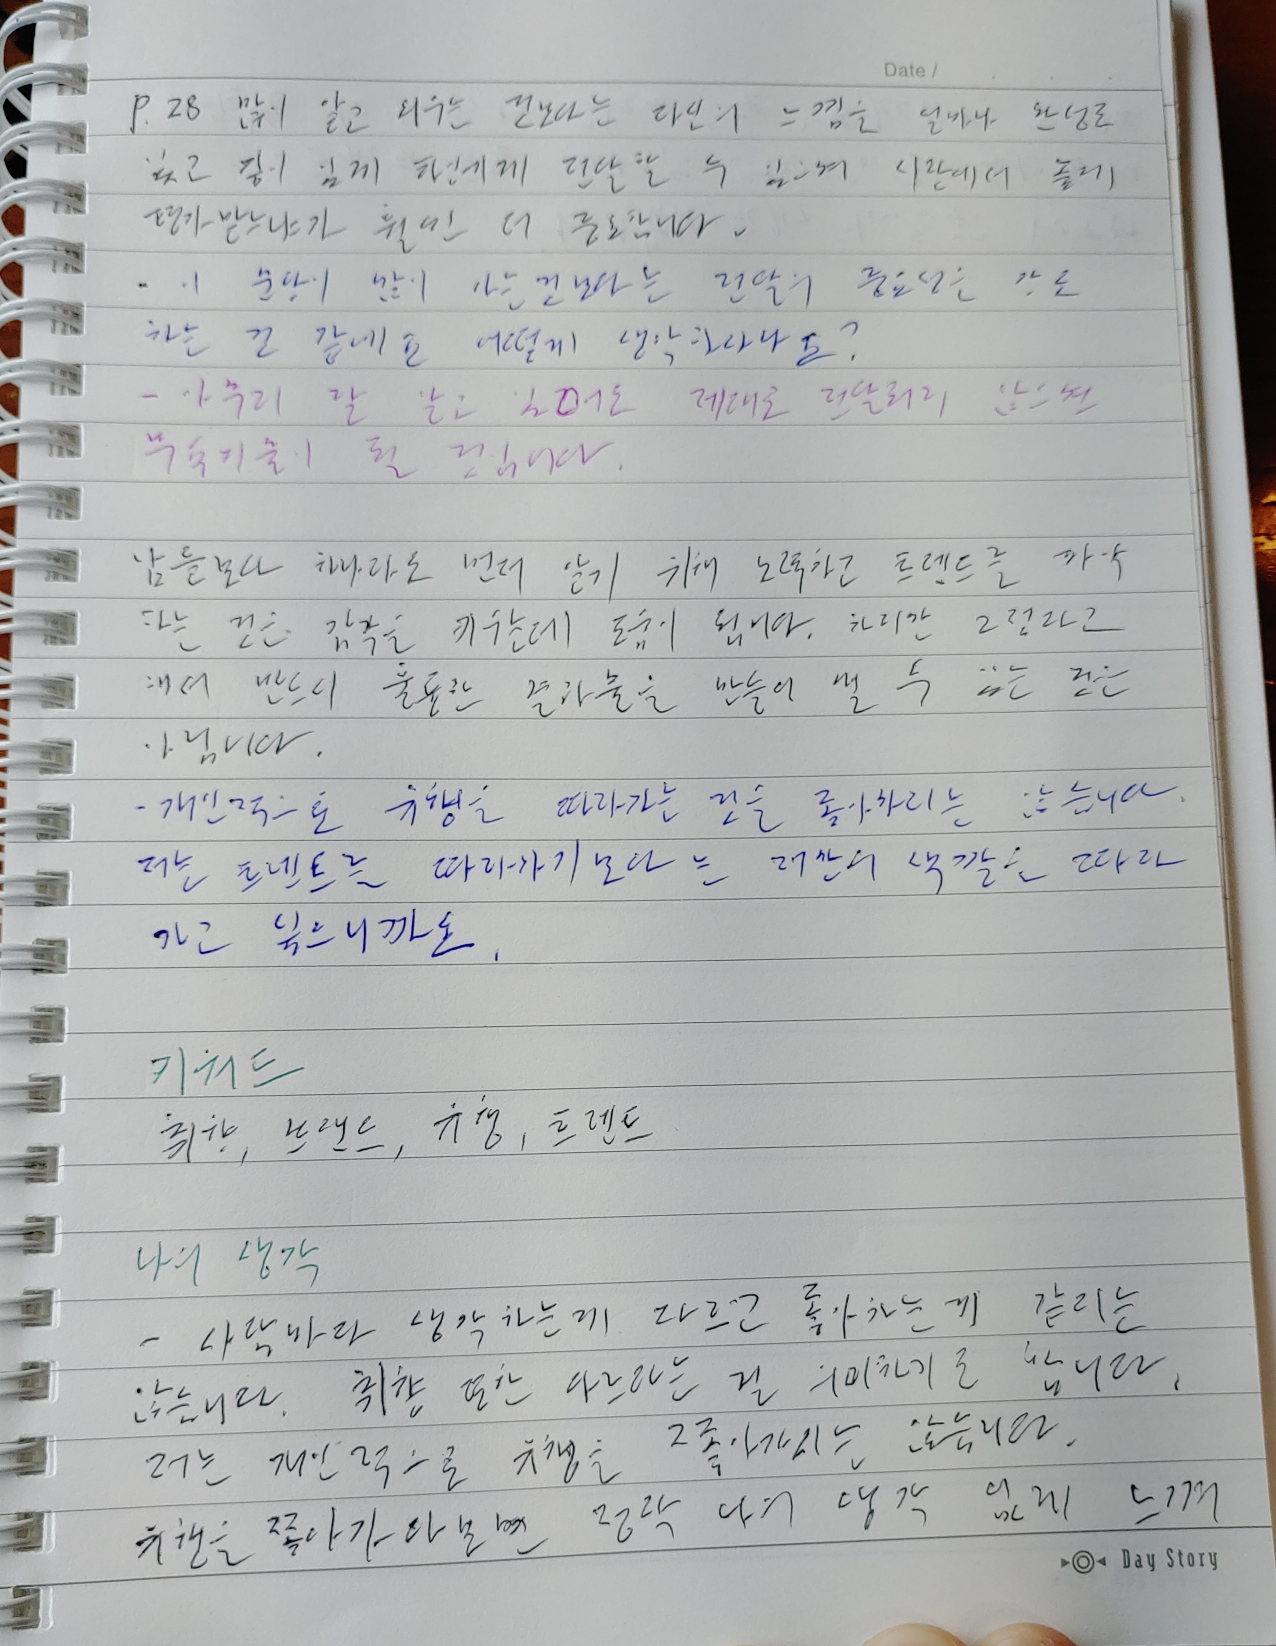 Date /
p. 28 많이 알고 외우는 것보다는 자신의 느낌을 얼마나 완성도
있고 깊이 있게 타인에게 전달할 수 있으며 시간에서 높게
평가받느냐가 훨씬 더 중요합니다.
- 이 문장이 많이 아는것보다는 전달의 중요성을 강조
하는 것 같네요 어떻게 생각하시나요?
- 아무리 잘 알고 있어도 제대로 전달되지 않으면
무용지물이 될 것입니다.
남들보다 하나라도 먼저 알기 위해 노력하고 트렌드를 파악
하는 것은 감각을 키우는데 도움이 됩니다. 하지만 그렇다고
해서 반드시 훌륭한 결과물을 만들어 낼 수 있는 것은
아닙니다.
- 개인적으로 유행을 따라가는 것을 좋아하지는 않습니다.
저는 트렌트를 따라가기보다는 저만의 색깔을 따라
가고 싶으니까요.
키워드
취향, 브랜드, 유행, 트렌트
나의 생각
- 사람마다 생각하는게 다르고 좋아하는게 같지는
않습니다. 취향 또한 다르다는 걸 의미하기도 합니다.
저는 개인적으로 유행을 쫓아가지는 않습니다.
유행을 쫓아가다보면 정작 나의 생각 있게 느껴
Day Story